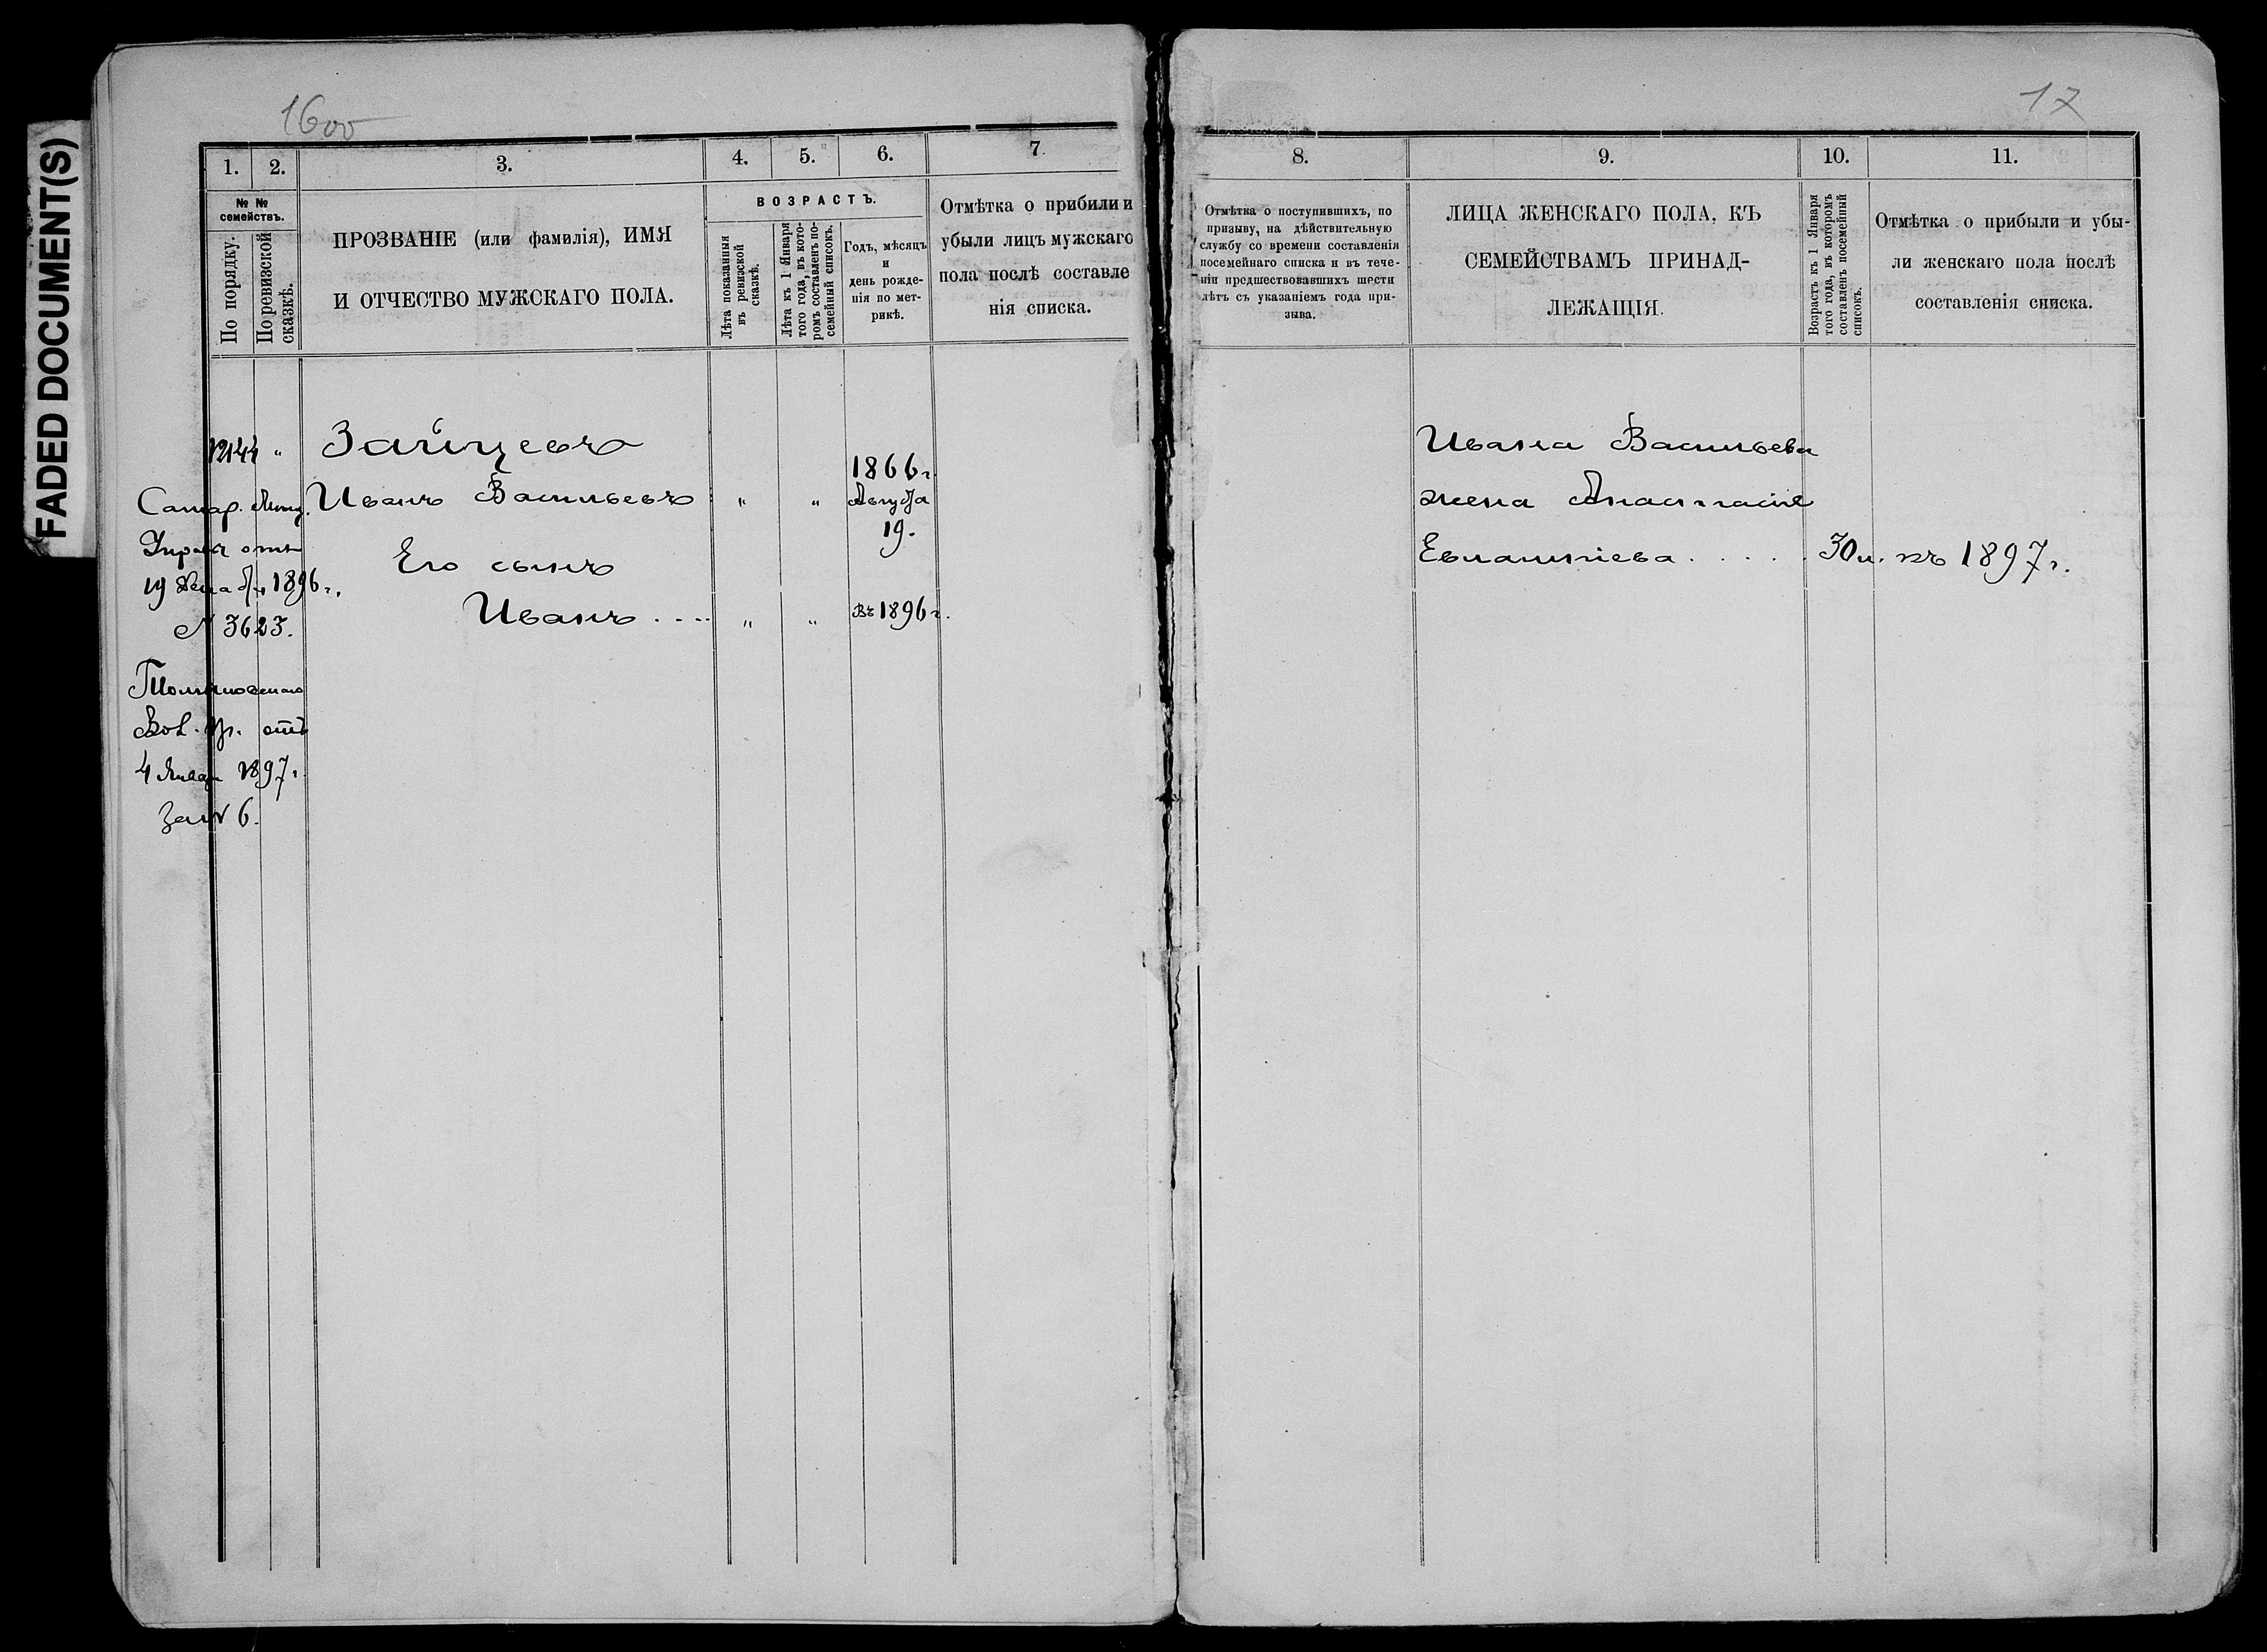 FADED DOCUMENT(S)
1600
17
1. 2. 3. 4. 5. 6. 7.
№ № семействъ.
По порядку.
По ревизской сказкѣ.
ПРОЗВАНІЕ (или фамилія), ИМЯ
И ОТЧЕСТВО МУЖСКАГО ПОЛА.
ВОЗРАСТЪ.
Лѣта показанныя въ ревизской сказкѣ.
Лѣта къ 1 Января того года, въ кото-
ромъ составленъ по-
семейный списокъ.
Годъ, мѣсяцъ
и
день рожде-
нія по мет-
рикѣ.
Отмѣтка о прибыли и
убыли лицъ мужскаго
пола послѣ составле
нія списка.
8. 9. 10. 11.
Отмѣтка о поступившихъ, по
призыву, на дѣйствительную
службу со времени составленія
посемейнаго списка и въ тече-
ніи предшествовавшихъ шести
лѣтъ съ указаніемъ года при-
зыва.
ЛИЦА ЖЕНСКАГО ПОЛА, КЪ
СЕМЕЙСТВАМЪ ПРИНАД-
ЛЕЖАЩІЯ.
Возрастъ къ 1 Января
того года, въ которомъ
составленъ посемейный
списокъ.
Отмѣтка о прибыли и убы-
ли женскаго пола послѣ
составленія списка.
" Зайцевъ
1866 г.
Самар. Иванъ Васильевъ " " Августа
19.
отъ
19 1896 г.
№ 3623.
Его сынъ
Иванъ .... " " Въ 1896 г.
Вол. пр. отъ
4 Января 1897 г.
за № 6.
Ивана Васильева
жена Анастасія
Евлампіева . . . . . 30 л. къ 1897 г.